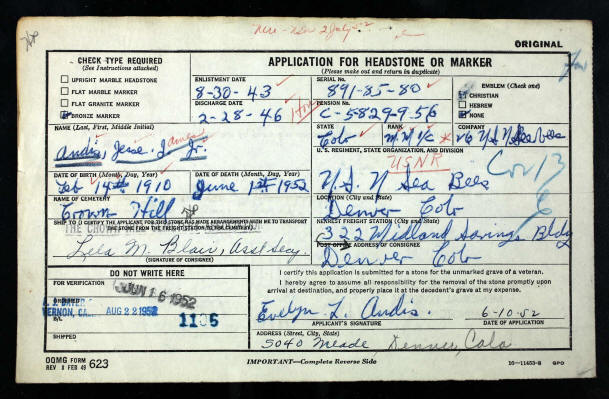 ORIGINAL
CHECK TYPE REQUIRED
(See Instructions attached)
UPRIGHT MARBLE HEADSTONE
FLAT MARBLE MARKER
FLAT GRANITE MARKER
BRONZE MARKER
APPLICATION FOR HEADSTONE OR MARKER
(Please make out and return in duplicate)
ENLISTMENT DATE
8-30-43
SERIAL No.
891-85-80
EMBLEM (Check one)
CHRISTIAN
HEBREW
NONE
DISCHARGE DATE
2-28-46
PENSION No.
C-5829-956
NAME (Last, First, Middle Initial)
Andis, Jesse J. Jr.
James
STATE
Colo
RANK
COMPANY
U.S. REGIMENT, STATE ORGANIZATION, AND DIVISION
USNR
U.S. N Sea Bees
DATE OF BIRTH (Month, Day, Year)
Feb 14th 1910
DATE OF DEATH (Month, Day, Year)
June 1st 1952
NAME OF CEMETERY
Crown Hill
LOCATION (City and State)
Denver Colo
SHIP TO (I CERTIFY THE APPLICANT FOR THIS STONE HAS MADE ARRANGEMENTS WITH ME TO TRANSPORT THE STONE FROM THE FREIGHT STATION TO THE CEMETERY)
Lela M. Blair, Asst Secy.
(SIGNATURE OF CONSIGNEE)
NEAREST FREIGHT STATION (City and State)
322 Midland Savings Bldg
POST OFFICE ADDRESS OF CONSIGNEE
Denver Colo
DO NOT WRITE HERE
FOR VERIFICATION
JUN 16 1952
ORDERED
VERNON,
AUG 22 1952
1185
SHIPPED
I certify this application is submitted for a stone for the unmarked grave of a veteran.
I hereby agree to assume all responsibility for the removal of the stone promptly upon arrival at destination, and properly place it at the decedent's grave at my expense.
Evelyn L. Andis.
6-10-52
APPLICANT'S SIGNATURE
DATE OF APPLICATION
ADDRESS (Street, City, State)
5040 Meade Denver, Colo
OQMG FORM
REV 8 FEB 49 623
IMPORTANT—Complete Reverse Side
16—11453-8 GPO